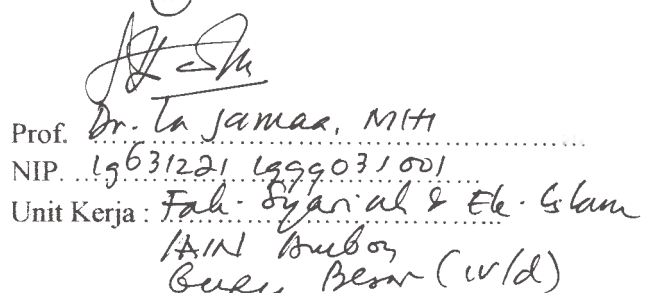 Prof. Dr. La Jamaa, MHI
NIP. 19631221 199903 1 001
Unit Kerja : Fak. Syariah & Ek. Islam
IAIN Ambon
Guru Besar (IV/d)